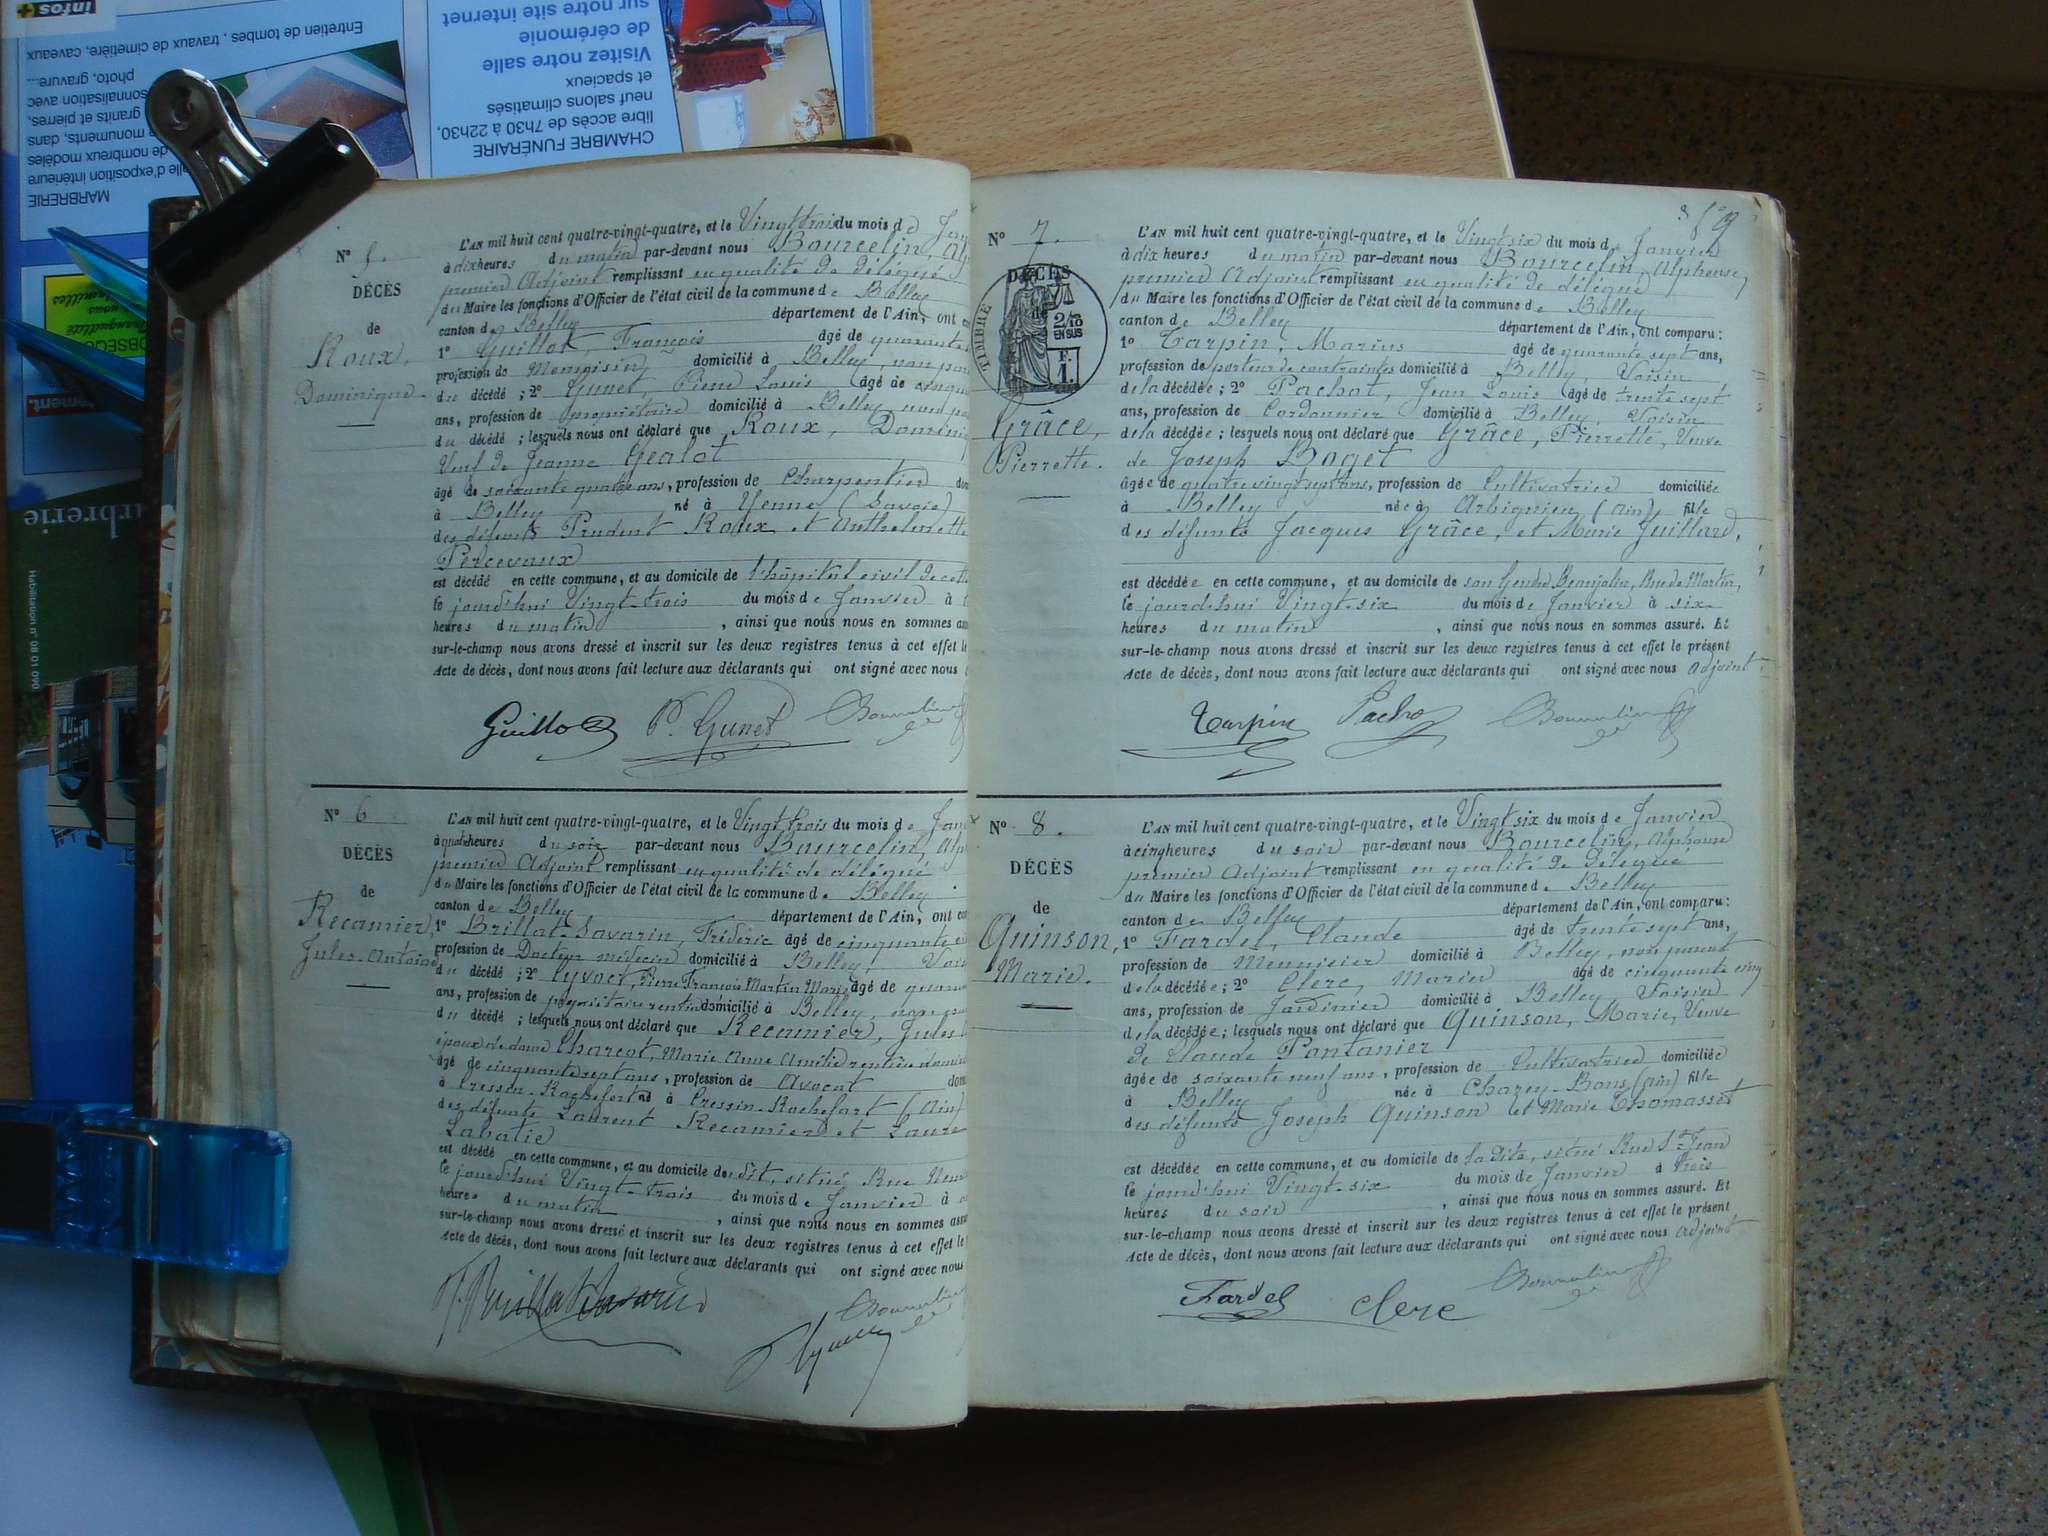 infos
Entretien de tombes, travaux de cimetière, caveaux
photo, gravure...
sonnalisation avec
granits et pierres,
monuments, dans
de nombreux modèles
d'exposition intérieure
MARBRERIE
sur notre site internet
de cérémonie
Visitez notre salle
et spacieux
neuf salons climatisés
libre accès de 7h30 à 22h30,
CHAMBRE FUNÉRAIRE
Habilitation n° 08 01 090
N° 5.
DÉCÈS
de
Roux,
Dominique.
L'AN mil huit cent quatre-vingt-quatre, et le Vingt trois du mois de
à dix heures du matin par-devant nous Bourcelin,
premier Adjoint remplissant en qualité de délégué
du Maire les fonctions d'Officier de l'état civil de la commune de Belley
canton de Belley département de l'Ain, ont
1° Guillot, François âgé de quarante
profession de Menuisier domicilié à Belley, non
du décédé ; 2° Gunet, Pierre Louis âgé de
ans, profession de propriétaire domicilié à Belley non
du décédé ; lesquels nous ont déclaré que Roux,
Veuf de Jeanne Gealot
âgé de soixante quatre ans, profession de Charpentier
à Belley né à Yenne (Savoie)
des défunts Prudent Roux et Anthelmette
Percevaux
est décédé en cette commune, et au domicile de l'hôpital civil de
le jourd'hui Vingt-trois du mois de Janvier à
heures du matin, ainsi que nous nous en sommes
sur-le-champ nous avons dressé et inscrit sur les deux registres tenus à cet effet le
Acte de décès, dont nous avons fait lecture aux déclarants qui ont signé avec nous
Guillot P. Gunet
N° 6
DÉCÈS
de
Recamier,
Jules-Antoine
L'AN mil huit cent quatre-vingt-quatre, et le Vingt trois du mois de
à quatre heures du soir par-devant nous Bourcelin,
premier Adjoint remplissant en qualité de délégué
du Maire les fonctions d'Officier de l'état civil de la commune de Belley
canton de Belley département de l'Ain, ont
1° Brillat-Savarin, Fréderic âgé de cinquante
profession de Docteur médecin domicilié à Belley,
du décédé ; 2° Pierre François Martin Marie âgé de
ans, profession de propriétaire rentier domicilié à Belley,
du décédé ; lesquels nous ont déclaré que Recamier, Jules
époux de dame Charcot, Marie Anne Amélie rentière
âgé de cinquante sept ans, profession de Avocat
à Cressin-Rochefort né à Cressin-Rochefort (Ain)
des défunts Laurent Recamier et Laure
Labatie
est décédé en cette commune, et au domicile du dit, situé Rue
le jourd'hui Vingt-trois du mois de Janvier à
heures du matin, ainsi que nous nous en sommes
sur-le-champ nous avons dressé et inscrit sur les deux registres tenus à cet effet le
Acte de décès, dont nous avons fait lecture aux déclarants qui ont signé avec nous
N° 7.
DÉCÈS
de
TIMBRE
2/10
EN SUS
F.
1.
Grâce,
Pierrette.
L'AN mil huit cent quatre-vingt-quatre, et le Vingt six du mois de Janvier
à dix heures du matin par-devant nous Bourcelin, Alphonse,
premier Adjoint remplissant en qualité de délégué
du Maire les fonctions d'Officier de l'état civil de la commune de Belley
canton de Belley département de l'Ain, ont comparu :
1° Tarpin, Marius âgé de quarante sept ans,
profession de porteur de contraintes domicilié à Belley, Voisin
de la décédée ; 2° Pachot, Jean Louis âgé de trente sept
ans, profession de Cordonnier domicilié à Belley, Voisin
de la décédée ; lesquels nous ont déclaré que Grâce, Pierrette, Veuve
de Joseph Boget
âgée de quatre vingt sept ans, profession de Cultivatrice domiciliée
à Belley née à Arbignieu (Ain) fille
des défunts Jacques Grâce, et Marie Juillard,
est décédée en cette commune, et au domicile de son Gendre Beaujolin, Rue de Martin,
le jourd'hui Vingt-six du mois de Janvier à six
heures du matin, ainsi que nous nous en sommes assuré. Et
sur-le-champ nous avons dressé et inscrit sur les deux registres tenus à cet effet le présent
Acte de décès, dont nous avons fait lecture aux déclarants qui ont signé avec nous adjoint.
Tarpin Pachot
N° 8.
DÉCÈS
de
Quinson,
Marie.
L'AN mil huit cent quatre-vingt-quatre, et le Vingt six du mois de Janvier
à cinq heures du soir par-devant nous Bourcelin, Alphonse
premier Adjoint remplissant en qualité de délégué
du Maire les fonctions d'Officier de l'état civil de la commune de Belley
canton de Belley département de l'Ain, ont comparu :
1° Fardel, Claude âgé de trente sept ans,
profession de Menuisier domicilié à Belley, non parent
de la décédée ; 2° Clerc, Marin âgé de cinquante cinq
ans, profession de Jardinier domicilié à Belley Voisin
de la décédée ; lesquels nous ont déclaré que Quinson, Marie, Veuve
de Claude Pontanier
âgée de soixante neuf ans, profession de Cultivatrice domiciliée
à Belley née à Charey-Bons, (Ain) fille
des défunts Joseph Quinson et Marie Thomasset
est décédée en cette commune, et au domicile de la dite, situé Rue St Jean
le jourd'hui Vingt-six du mois de Janvier à trois
heures du soir, ainsi que nous nous en sommes assuré. Et
sur-le-champ nous avons dressé et inscrit sur les deux registres tenus à cet effet le présent
Acte de décès, dont nous avons fait lecture aux déclarants qui ont signé avec nous adjoint
Fardel Clerc